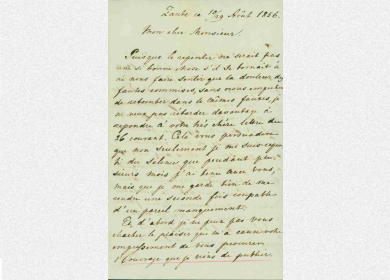 Zante ce 10/29 Août 1856.
Mon cher Monsieur.
Puisque le repentir ne serait pas
une si bonne chose s'il se bornait à
ne nous faire sentir que la douleur des
fautes commises, sans nous empêcher
de retomber dans les mêmes fautes, je
ne veux pas retarder davantage à
répondre à votre très chère lettre du
26 courant. Cela vous persuadera
que non seulement je me suis repen
ti du silence que pendant plu
sieurs mois j'ai tenu avec vous,
mais que je me garde bien de me
rendre une seconde fois coupable
d'un pareil manquement.
Et d'abord je ne peux pas vous
cacher le plaisir que m'a causé votre
empressement de vous procurer
l'ouvrage que je viens de publier.